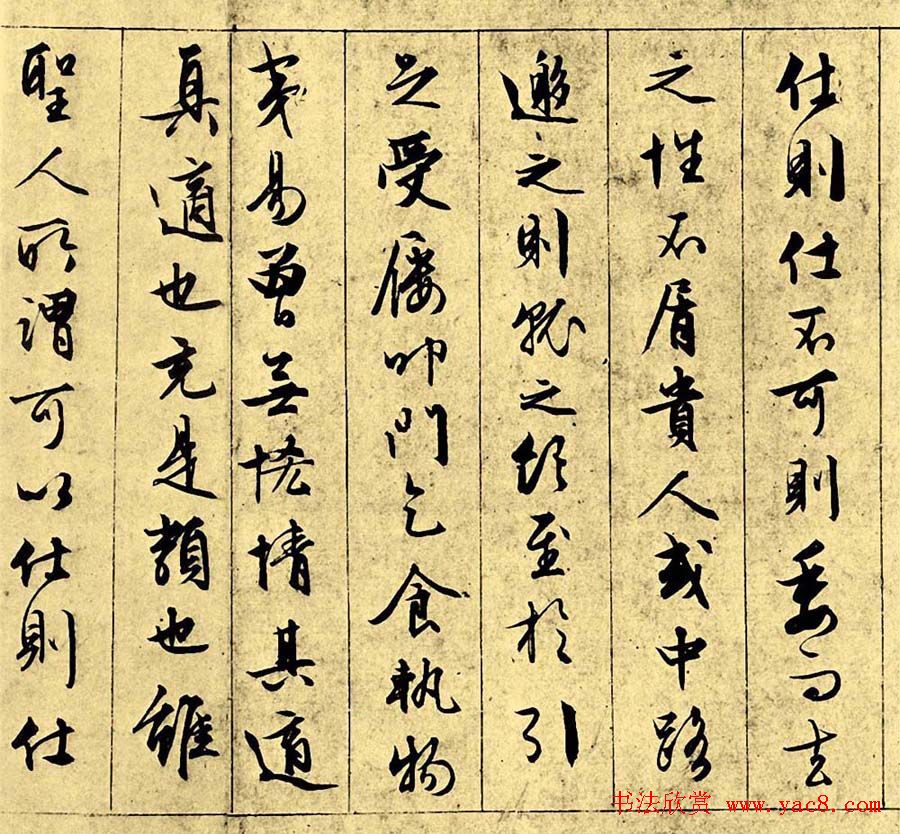 仕則仕不可則委而去
之性不屑貴人或中路
邀之則就之飲至於引
足受履叩門乞食執物
交易曾無恡情其適
真適也充是類也雖
聖人所謂可以仕則仕
书法欣赏 www.yac8.com